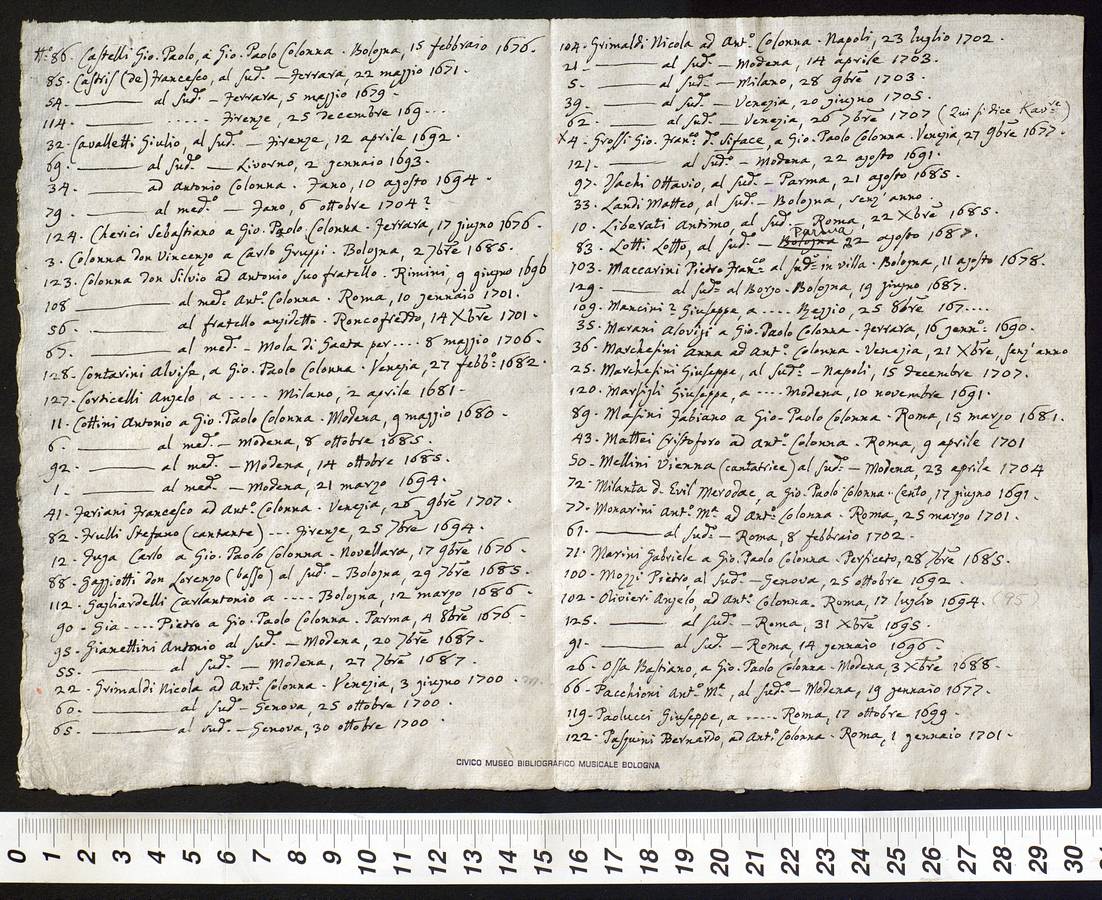 N.° 86. Castelli Gio. Paolo, a Gio. Paolo Colonna. Bologna, 15 febbraio 1676.
85. Castris (de) Francesco, al sud.° - Ferrara, 22 maggio 1671.
54. ——— al sud.° - Ferrara, 5 maggio 1679.
114. ——— ..... Firenze, 25 decembre 169...
32. Cavalletti Giulio, al sud.° - Firenze, 12 aprile 1692.
69. ——— al sud.° — Livorno, 2 gennaio 1693.
34. ——— ad Antonio Colonna. Fano, 10 agosto 1694.
79. ——— al med.° — Fano, 6 ottobre 1704?
124. Cherici Sebastiano a Gio. Paolo Colonna. Ferrara, 17 giugno 1676.
3. Colonna don Vincenzo a Carlo Gruppi. Bologna, 2 7bre 1685.
123. Colonna don Silvio ad Antonio suo fratello. Rimini, 9 giugno 1696
108 ——— al med.° Ant.° Colonna. Roma, 10 gennaio 1701.
56. ——— al fratello anzidetto. Roncofreddo, 14 Xbre 1701.
67. ——— al med.° - Mola di Gaeta per.... 8 maggio 1706.
128. Contarini Alvise, a Gio. Paolo Colonna. Venezia, 27 febb.° 1682.
127. Corticelli Angelo, a ..... Milano, 2 aprile 1681.
11. Cottini Antonio a Gio. Paolo Colonna. Modena, 9 maggio 1680.
6. ——— al med.° — Modena, 8 ottobre 1685.
92. ——— al med.° - Modena, 14 ottobre 1685.
1. ——— al med.° — Modena, 21 marzo 1694.
41. Feriani Francesco ad Ant.° Colonna. Venezia, 26 9bre 1707.
82. Frulli Stefano (cantante) ... Firenze, 25 7bre 1694.
12. Fuga Carlo a Gio. Paolo Colonna. Novellara, 17 9bre 1676.
88. Gaggiotti don Lorenzo (basso) al sud.° - Bologna, 29 7bre 1685.
112. Gagliardelli Carlantonio a ..... Bologna, 12 marzo 1686.
90. Gia.... Pietro a Gio. Paolo Colonna. Parma, 4 8bre 1676.
95. Gianettini Antonio al sud.° — Modena, 20 7bre 1687.
55. ——— al sud.° — Modena, 27 7bre 1687.
22. Grimaldi Nicola ad Ant.° Colonna. Venezia, 3 giugno 1700.
60. ——— al sud.° - Genova, 25 ottobre 1700.
65. ——— al sud.° — Genova, 30 ottobre 1700.
104. Grimaldi Nicola ad Ant.° Colonna. Napoli, 23 luglio 1702.
21 ——— al sud.° - Modena, 14 aprile 1703.
5. ——— al sud.° — Milano, 28 9bre 1703.
39. ——— al sud.° — Venezia, 20 giugno 1705.
62. ——— al sud.° — Venezia, 26 7bre 1707 (Qui si dice Kav.re)
X 4. Grossi Gio. Fran.co d.° Siface, a Gio. Paolo Colonna. Venezia, 27 9bre 1677.
121. ——— al sud.° — Modena, 22 agosto 1691.
97. Iachi Ottavio, al sud.° - Parma, 21 agosto 1685.
33. Landi Matteo, al sud.° - Bologna, senz'anno.
10. Liberati Antimo, al sud.° Roma, 22 Xbre 1685.
83. Lotti Lotto, al sud.° — Bologna Parma 22 agosto 1687.
103. Maccarini Pietro Fran.co al sud.° in villa. Bologna, 11 agosto 1678.
129. ——— al sud.° al Borgo. Bologna, 19 giugno 1687.
109. Mancini? Giuseppe a ..... Reggio, 25 8bre 167....
35. Marani Alovigi a Gio. Paolo Colonna. Ferrara, 16 genn.° 1690.
36. Marchesini Anna ad Ant.° Colonna. Venezia, 21 Xbre, senz'anno
25. Marchesini Giuseppe, al sud.° - Napoli, 15 decembre 1707.
120. Marsigli Giuseppe, a .... Modena, 10 novembre 1691.
89. Masini Fabiano a Gio. Paolo Colonna. Roma, 15 marzo 1681.
43. Mattei Cristoforo ad Ant.° Colonna. Roma, 9 aprile 1701
50. Mellini Vienna (cantatrice) al sud.° - Modena, 23 aprile 1704
72. Milanta d. Evil Merodac, a Gio. Paolo Colonna. Cento, 17 giugno 1691.
77. Monarini Ant.° M.a ad Ant.° Colonna. Roma, 25 marzo 1701.
61. ——— al sud.° - Roma, 8 febbraio 1702.
71. Marini Gabriele a Gio. Paolo Colonna. Persiceto, 28 7bre 1685.
100. Mozzi Pietro al sud.° — Genova, 25 ottobre 1692.
102. Olivieri Angelo, ad Ant.° Colonna. Roma, 17 luglio 1694. (95)
125. ——— al sud.° - Roma, 31 Xbre 1695.
91. ——— al sud.° - Roma, 14 gennaio 1696.
26. Ossa Bastiano, a Gio. Paolo Colonna. Modena, 3 Xbre 1688.
66. Pacchioni Ant.° M.a, al sud.° - Modena, 19 gennaio 1677.
119. Paolucci Giuseppe, a ..... Roma, 17 ottobre 1699.
122. Pasquini Bernardo, ad Ant.° Colonna. Roma, 1 gennaio 1701.
CIVICO MUSEO BIBLIOGRAFICO MUSICALE BOLOGNA
0 1 2 3 4 5 6 7 8 9 10 11 12 13 14 15 16 17 18 19 20 21 22 23 24 25 26 27 28 29 30